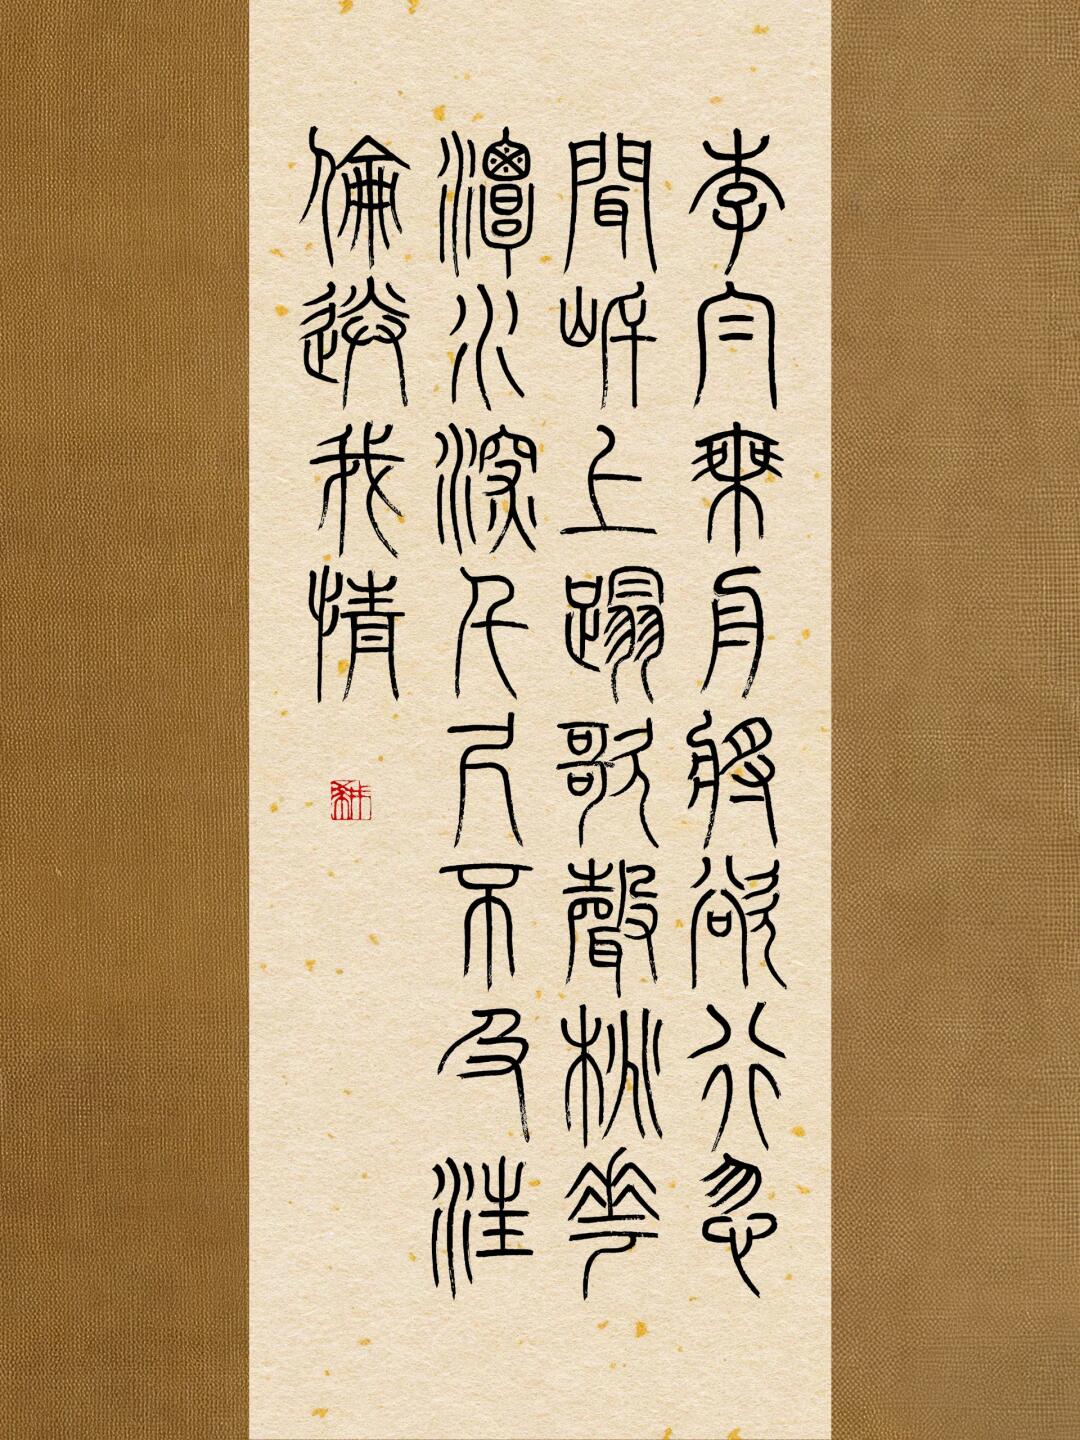 李白乘舟將欲行忽
聞岸上蹋歌聲桃花
潭水深千尺不及汪
倫送我情